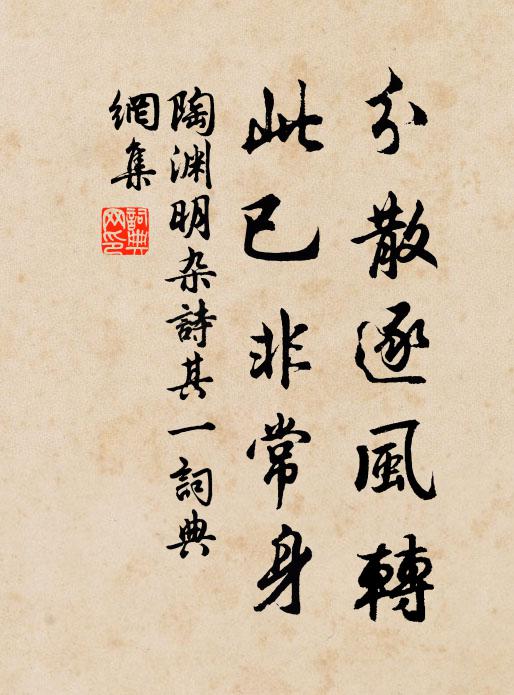 分散逐風轉
此已非常身
陶渊明杂詩其一詞典
網集
詞典
网印